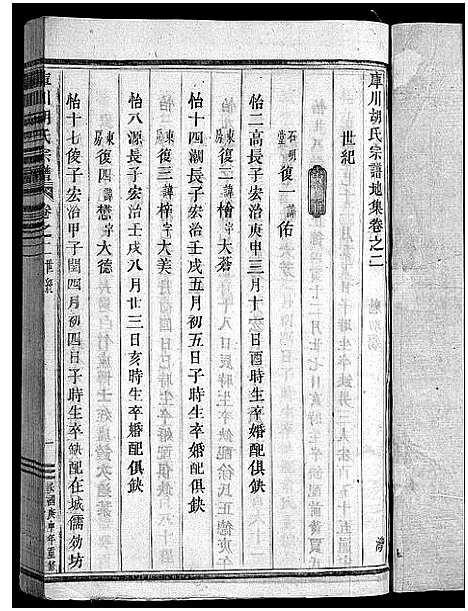 庫川胡氏宗譜地集卷之二
世紀
石明堂 復一諱佑
怡二高長子宏治庚申三月十一日酉時生卒婚配俱缺
東房 復二諱檜字大蒼
怡十四潮長子宏治壬戌五月初五日子時生卒婚配俱缺
東房 復三諱梓字大美
怡八源長子宏治壬戌八月廿三日亥時生卒婚配俱缺
東房 復四諱懋字大德
怡十七俊子宏治甲子閏四月初四日子時生卒缺配在城儒効坊
庫川胡氏宗譜 卷之二世紀 一